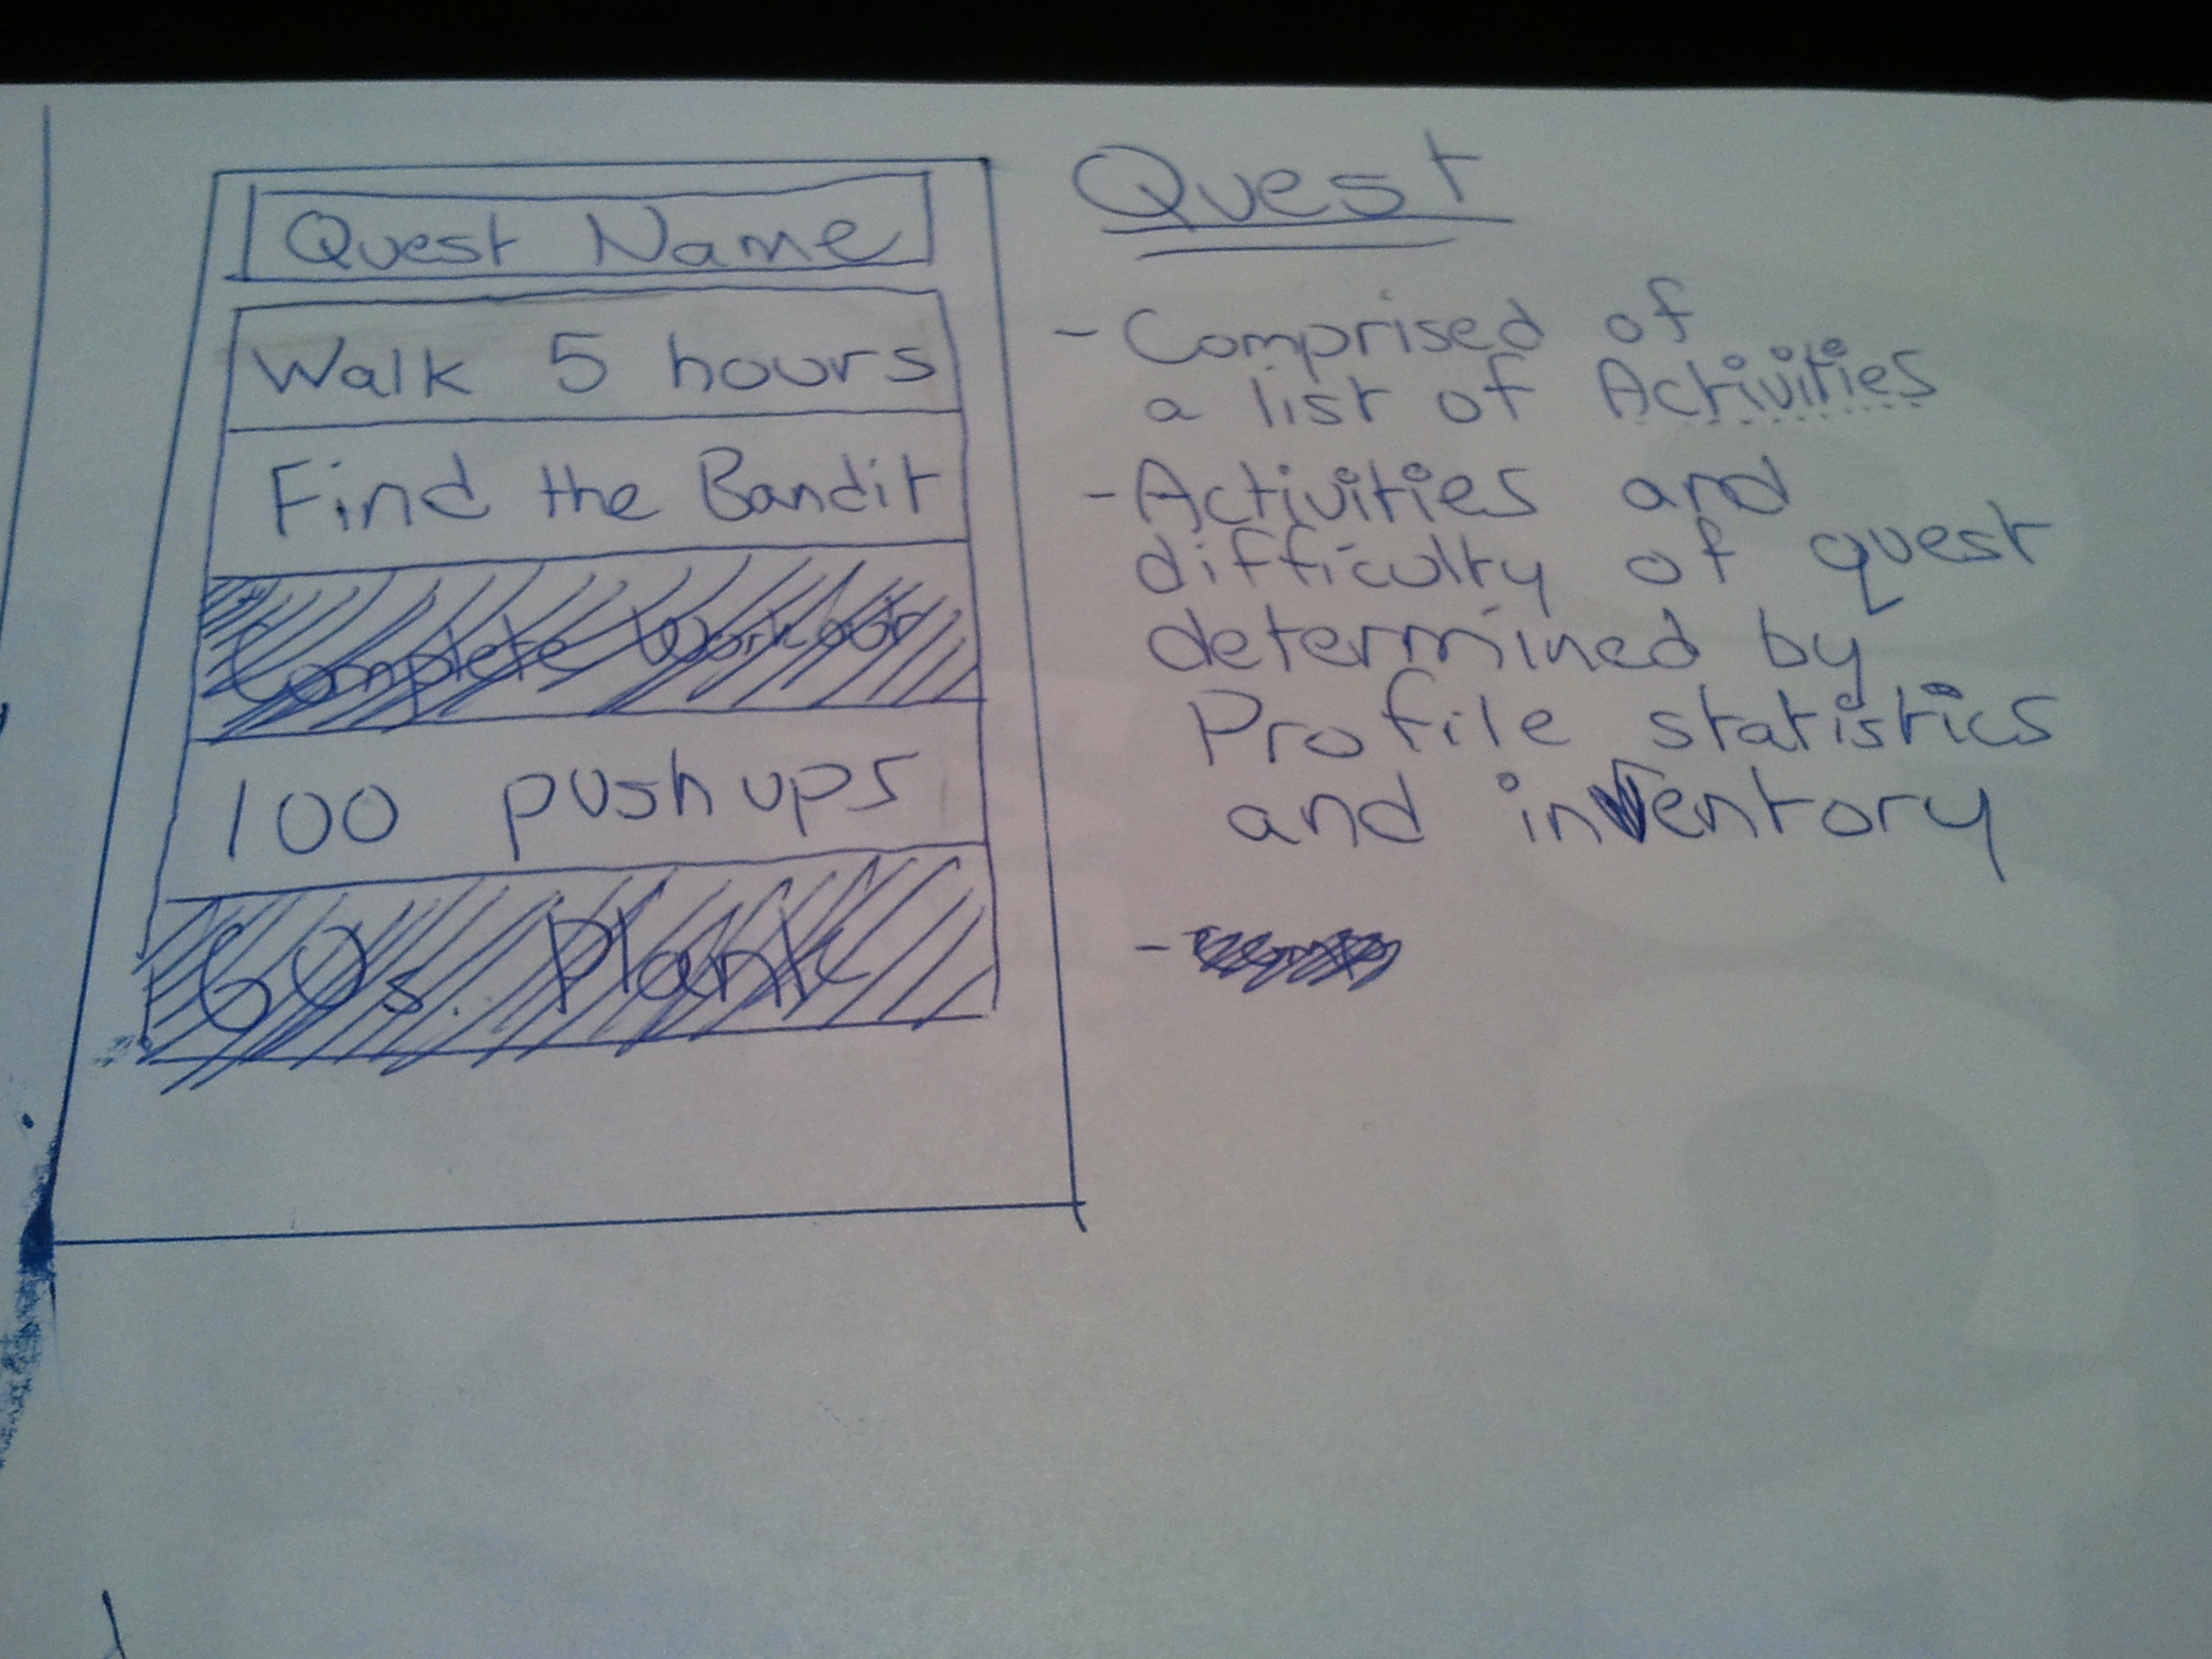 Quest Name
Walk 5 hours
Find the Bandit
Complete Workout
100 push ups
60s. Plank
Quest
- Comprised of
a list of Activities
- Activities and
difficulty of quest
determined by
Profile statistics
and inventory
-